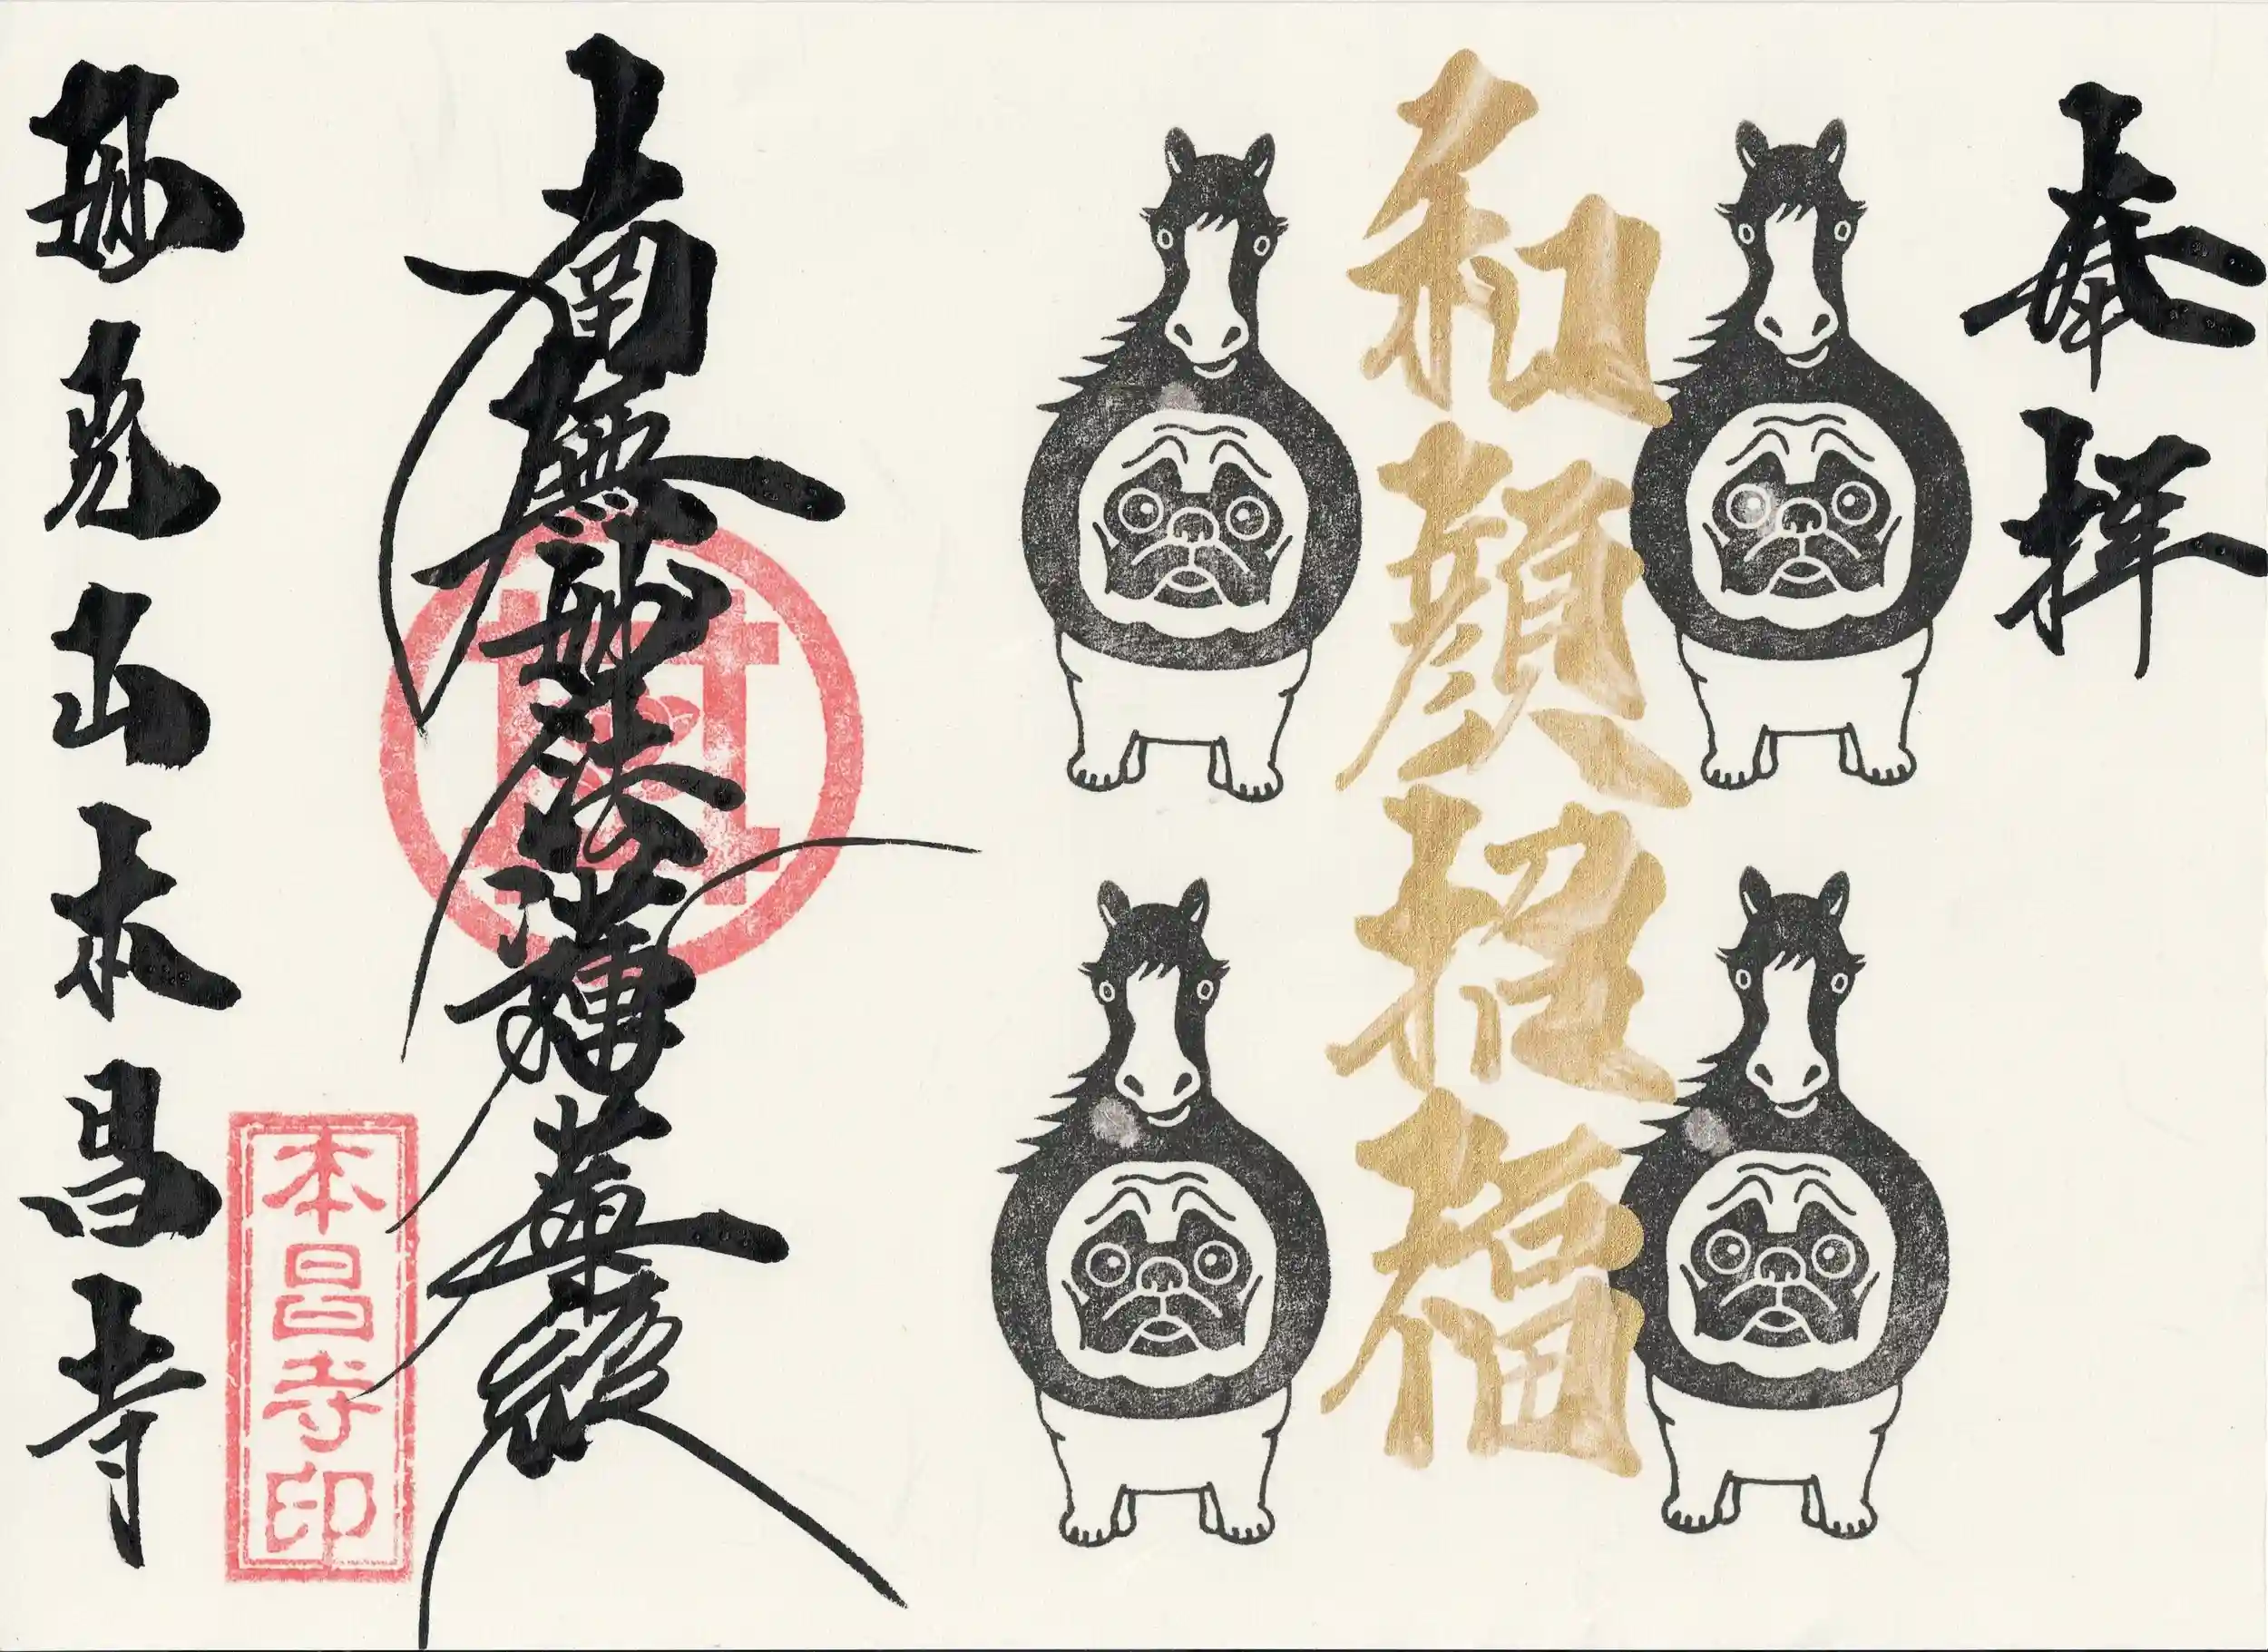 奉拝
和顔招福
南無妙法蓮華経
妙堯山本昌寺
本昌寺印